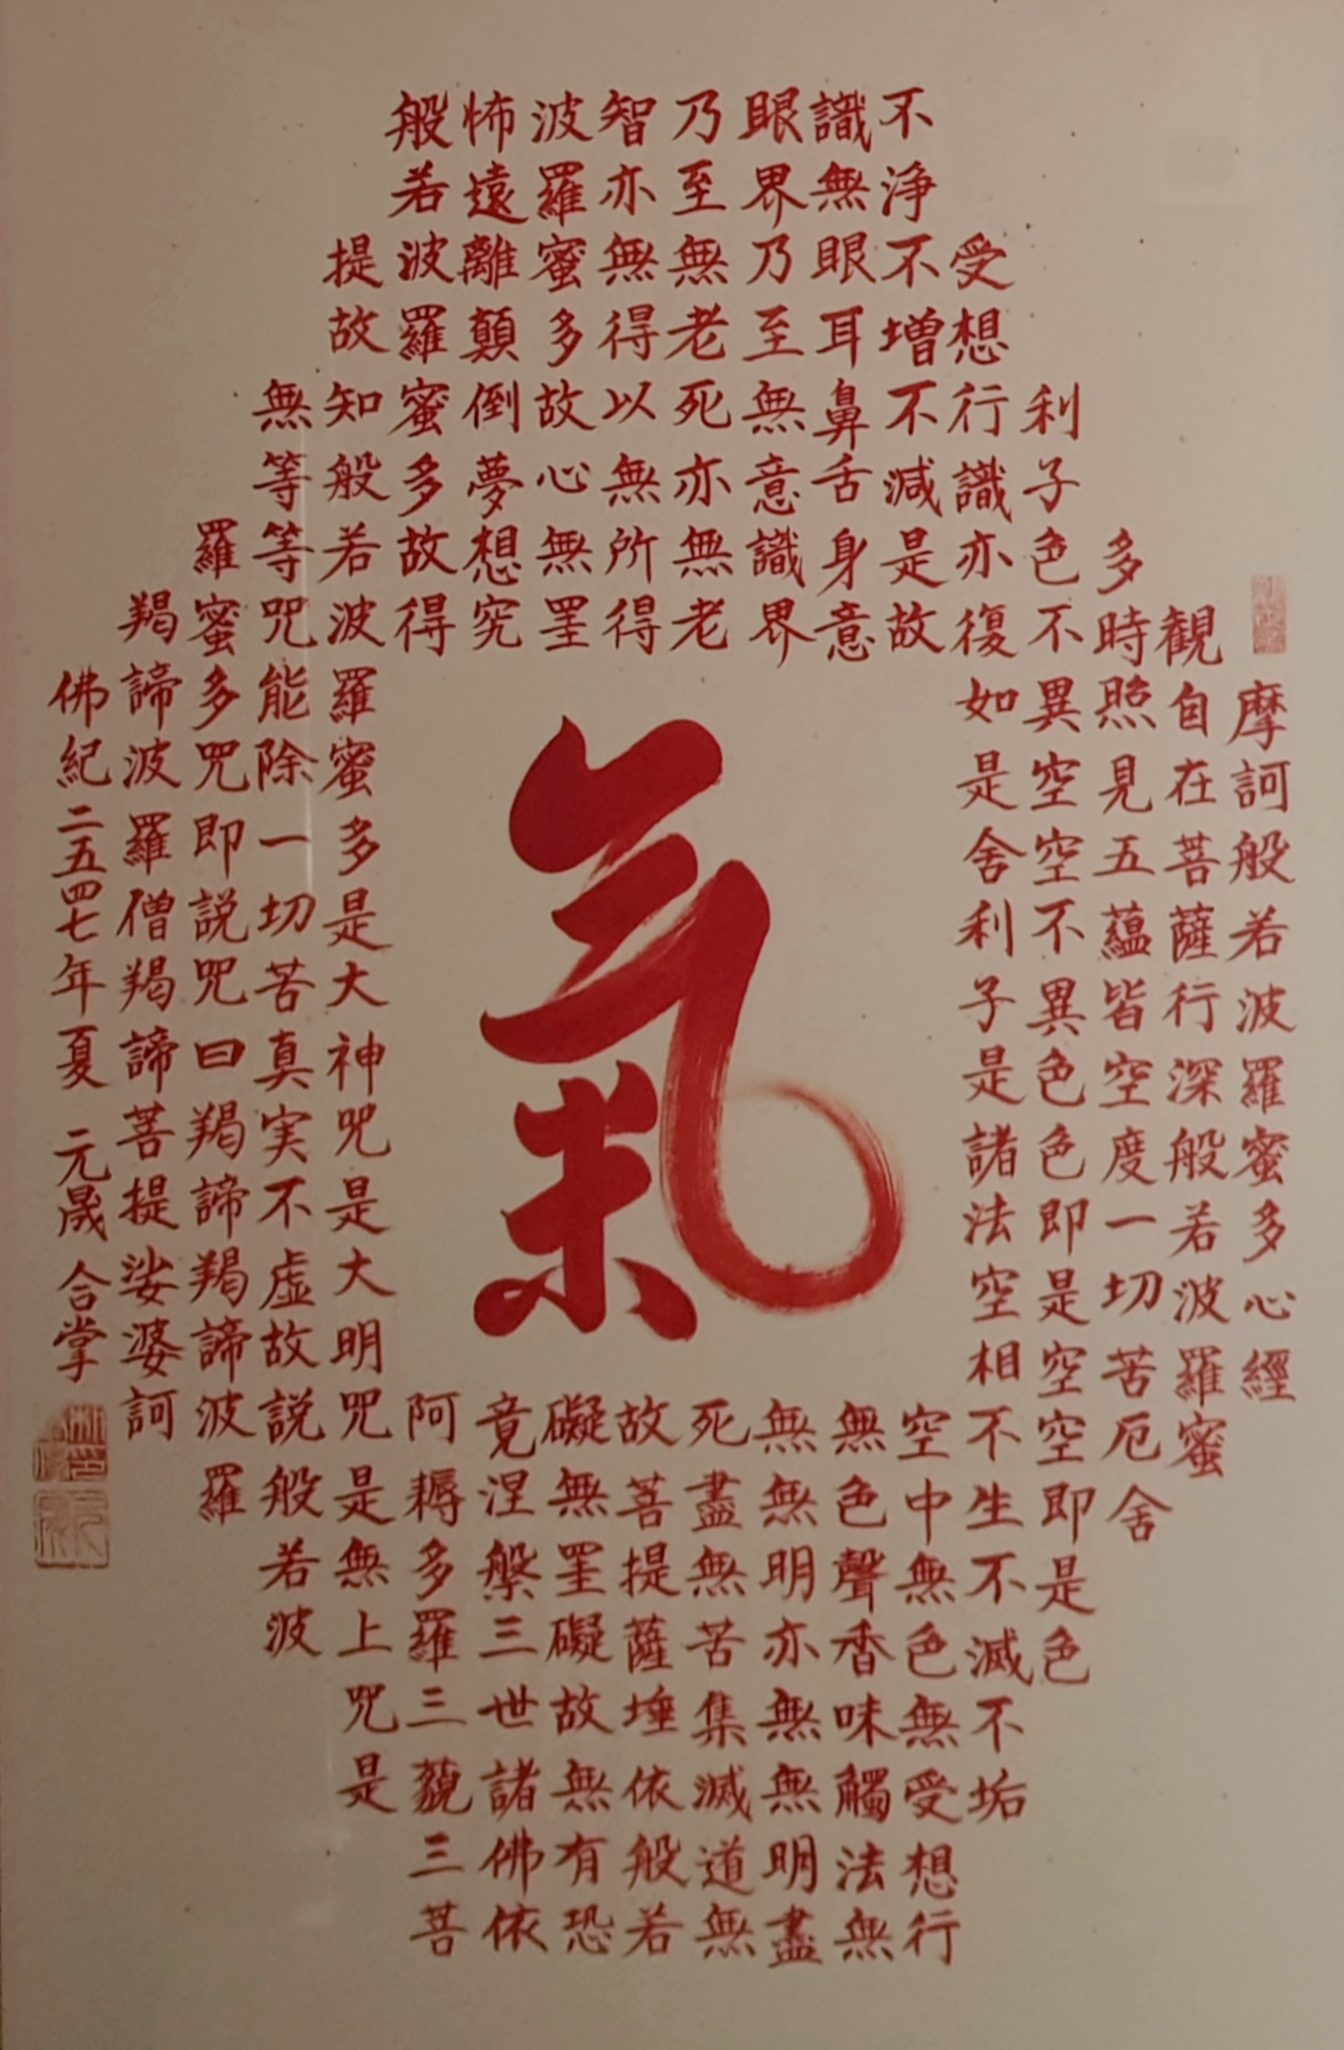 摩訶般若波羅蜜多心經
觀自在菩薩行深般若波羅蜜
多時照見五蘊皆空度一切苦厄舍
利子色不異空空不異色色即是空空即是色
受想行識亦復如是舍利子是諸法空相不生不滅不垢
不浄不増不減是故空中無色無受想行
識無眼耳鼻舌身意無色聲香味觸法無
眼界乃至無意識界無無明亦無無明盡
乃至無老死亦無老死盡無苦集滅道無
智亦無得以無所得故菩提薩埵依般若
波羅蜜多故心無罣礙無罣礙故無有恐
怖遠離顛倒夢想究竟涅槃三世諸佛依
般若波羅蜜多故得阿耨多羅三藐三菩
提故知般若波羅蜜多是大神咒是大明咒是無上咒是
無等等咒能除一切苦真実不虚故説般若波
羅蜜多咒即説咒曰羯諦羯諦波羅
羯諦波羅僧羯諦菩提娑婆訶
佛紀二五四七年夏 元晟 合掌
氣